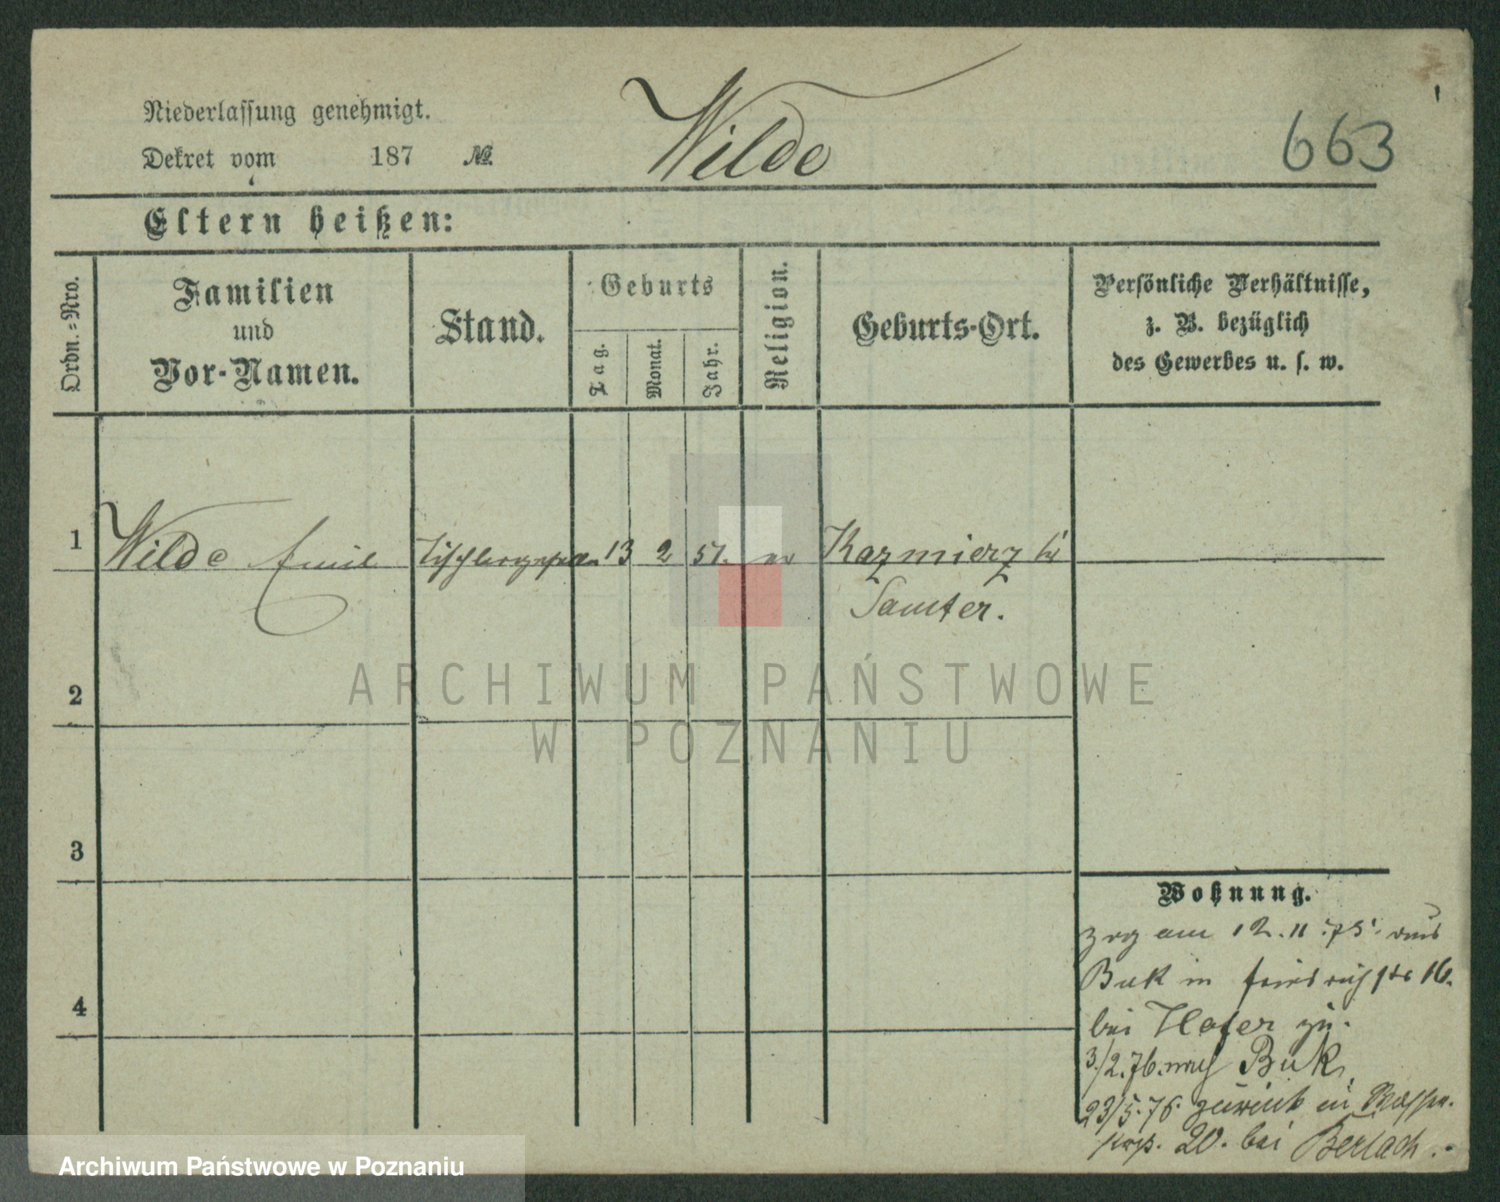 Niederlassung genehmigt.
Dekret vom 187 №
Wilde
663
Eltern heißen:
Ordn.=Nro.
Familien
und
Vor-Namen.
Stand.
Geburts
Tag.
Monat.
Jahr.
Religion.
Geburts-Ort.
Persönliche Verhältnisse,
z. B. bezüglich
des Gewerbes u. s. w.
1
Wilde Emil 13 2 51. ev Kazmierz bei
Samter.
2
3
4
ARCHIWUM PAŃSTWOWE
W POZNANIU
Wohnung.
zog am 12.11.75. aus
Buk in Friedrichstr 16.
bei zu.
3/2.76. nach Buk,
23/5.76 zurück in
20. bei Berlach.
Archiwum Państwowe w Poznaniu